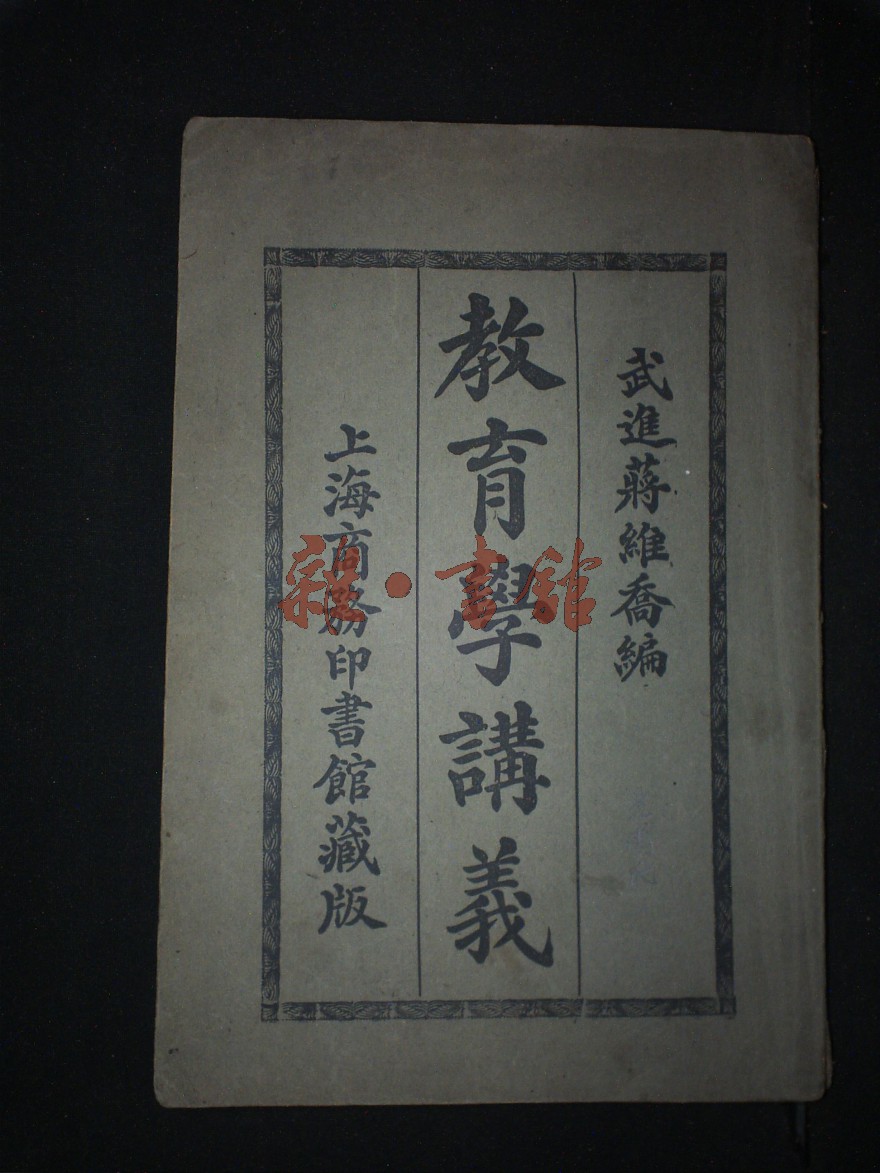 武進蔣維喬編
教育學講義
上海商務印書館藏版
雜·書館